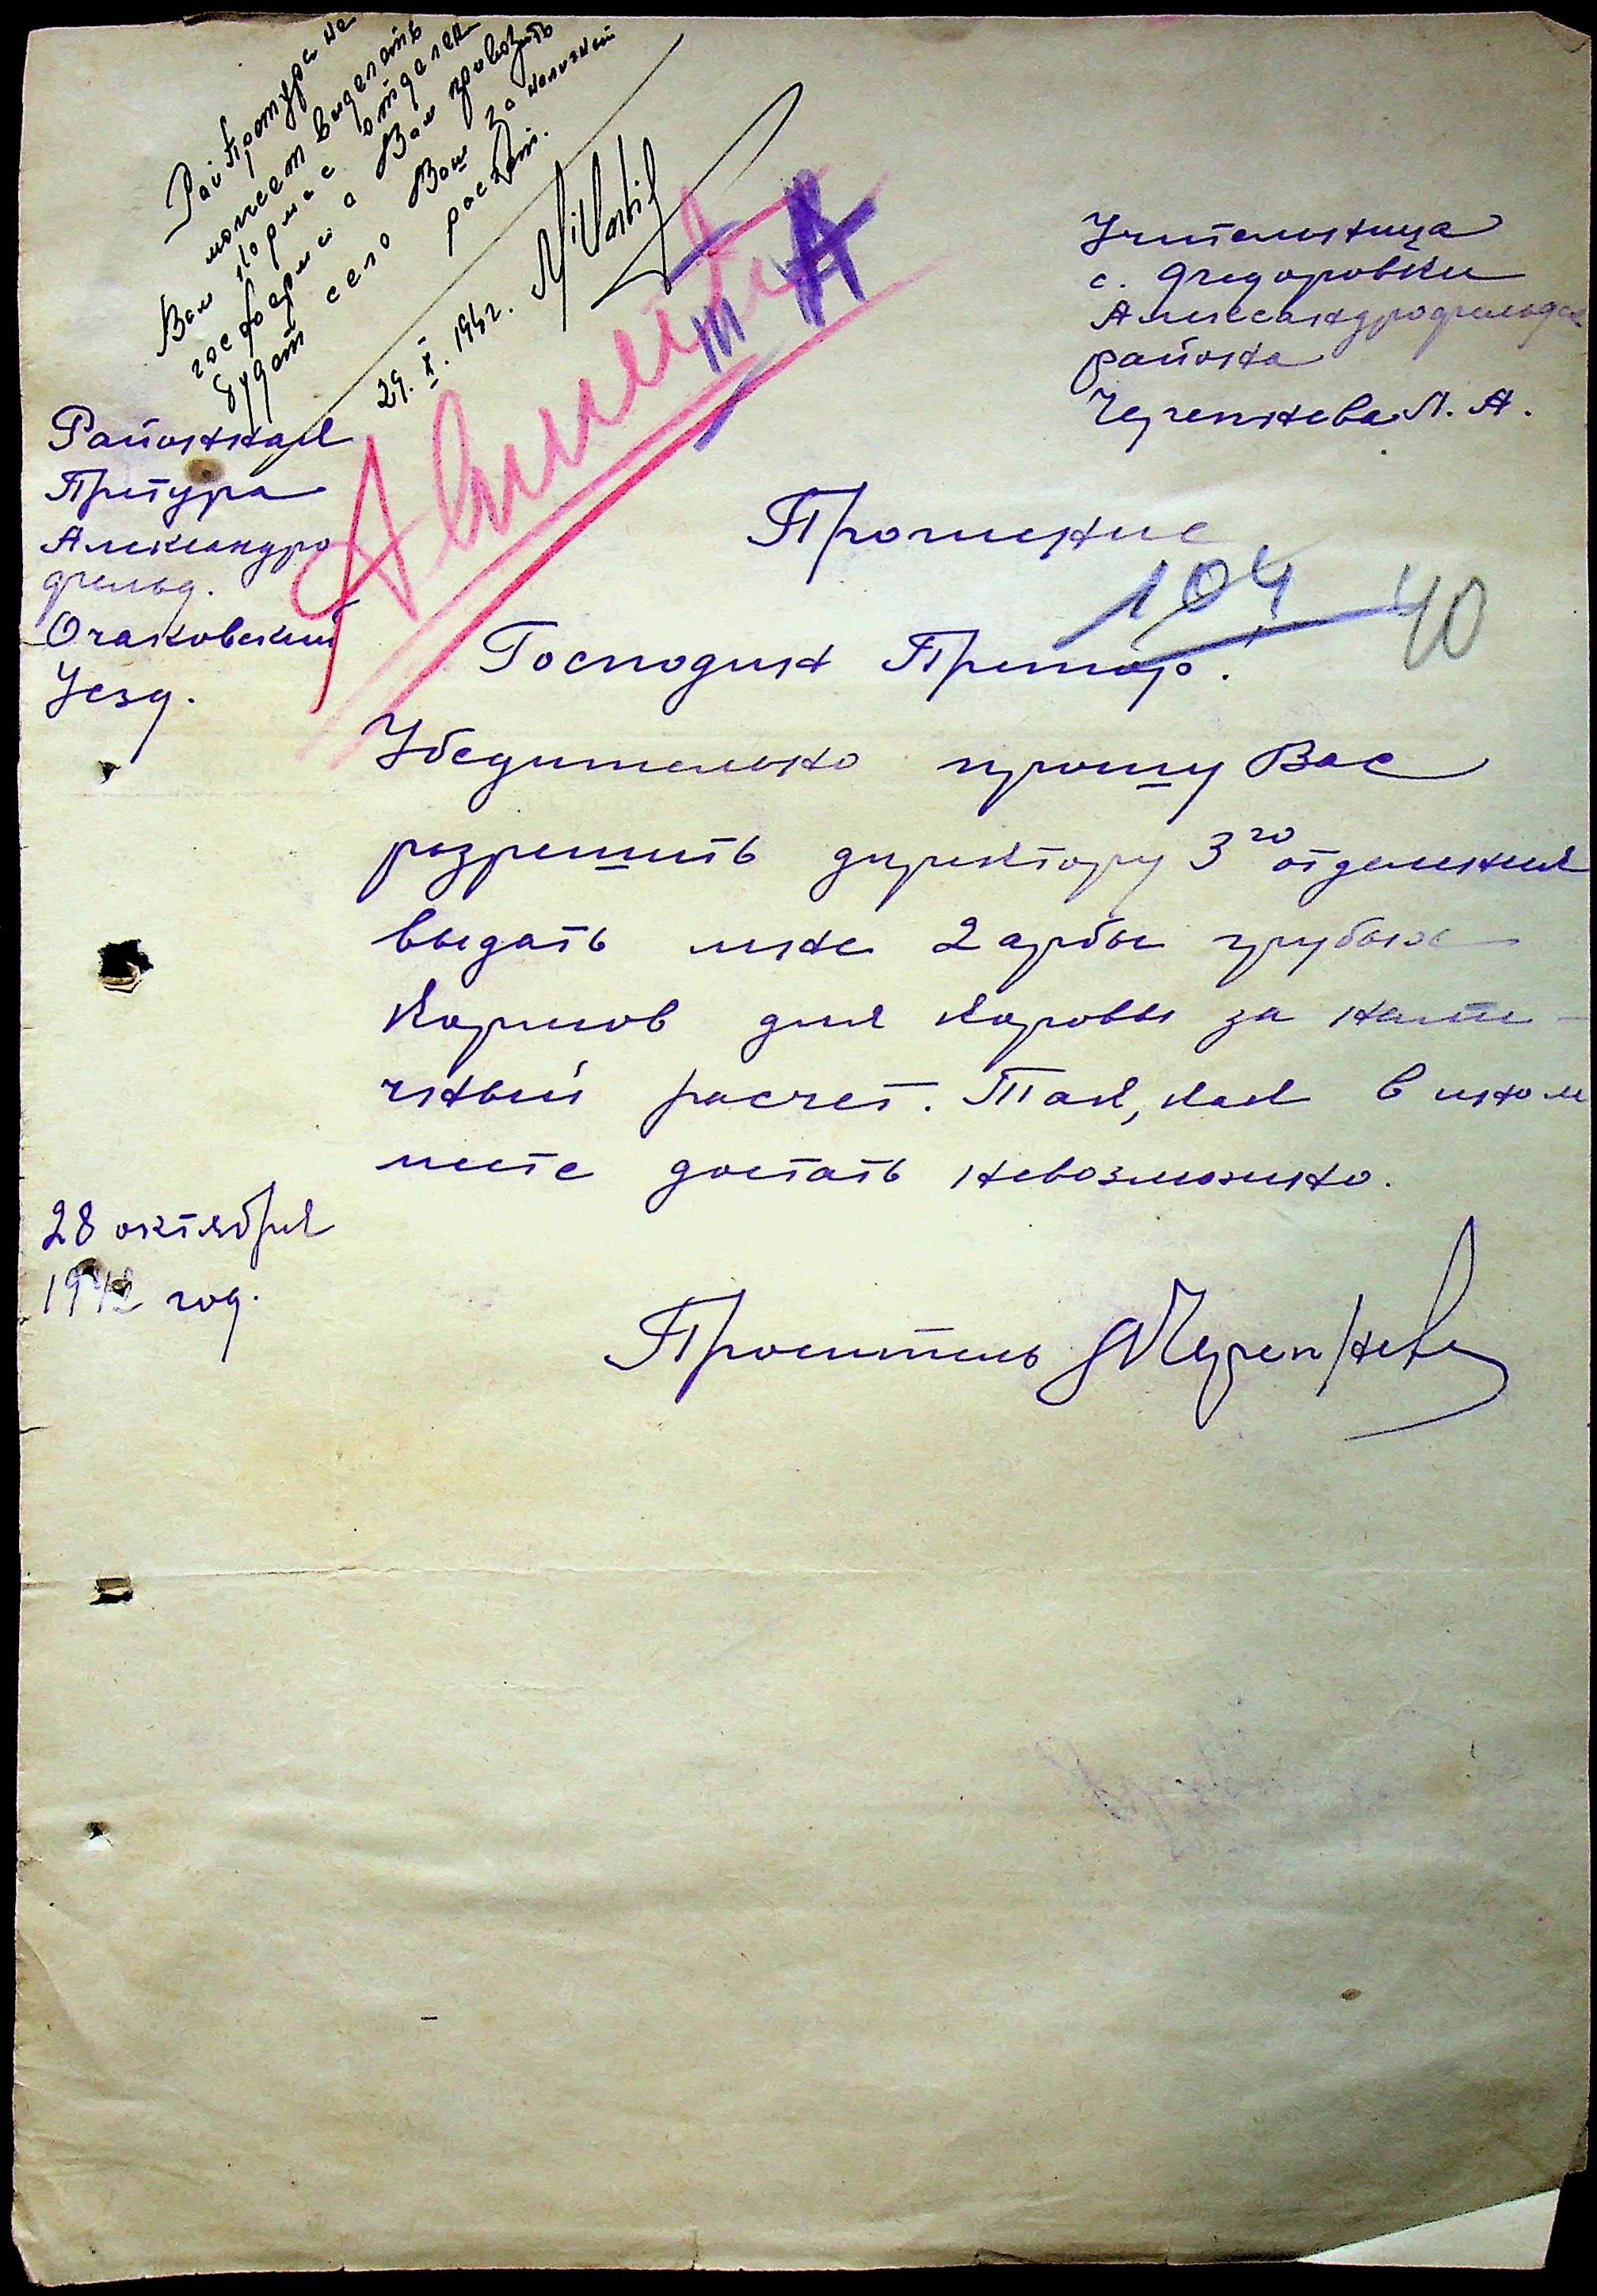 РайПретура не
может выделить
Вам корма с отделен.
госфермы а Вам привозить
будет село Ваш за наличный
расчет.
29. X. 1942.
Учительница
с. Федоровки
Александрофельдск
района
Черепнева Л. А.
Районная
Претура
Александро
фельд.
Очаковский
Уезд.
III A
Прошение
104 40
Господин Претор!
Убедительно прошу Вас
разрешить директору 3го отделения
выдать мне 2 арбы грубых
кормов для коровы за нали-
чный расчет. Так, как в ином
месте достать невозможно.
28 октября
1942 год.
Проситель Черепнева